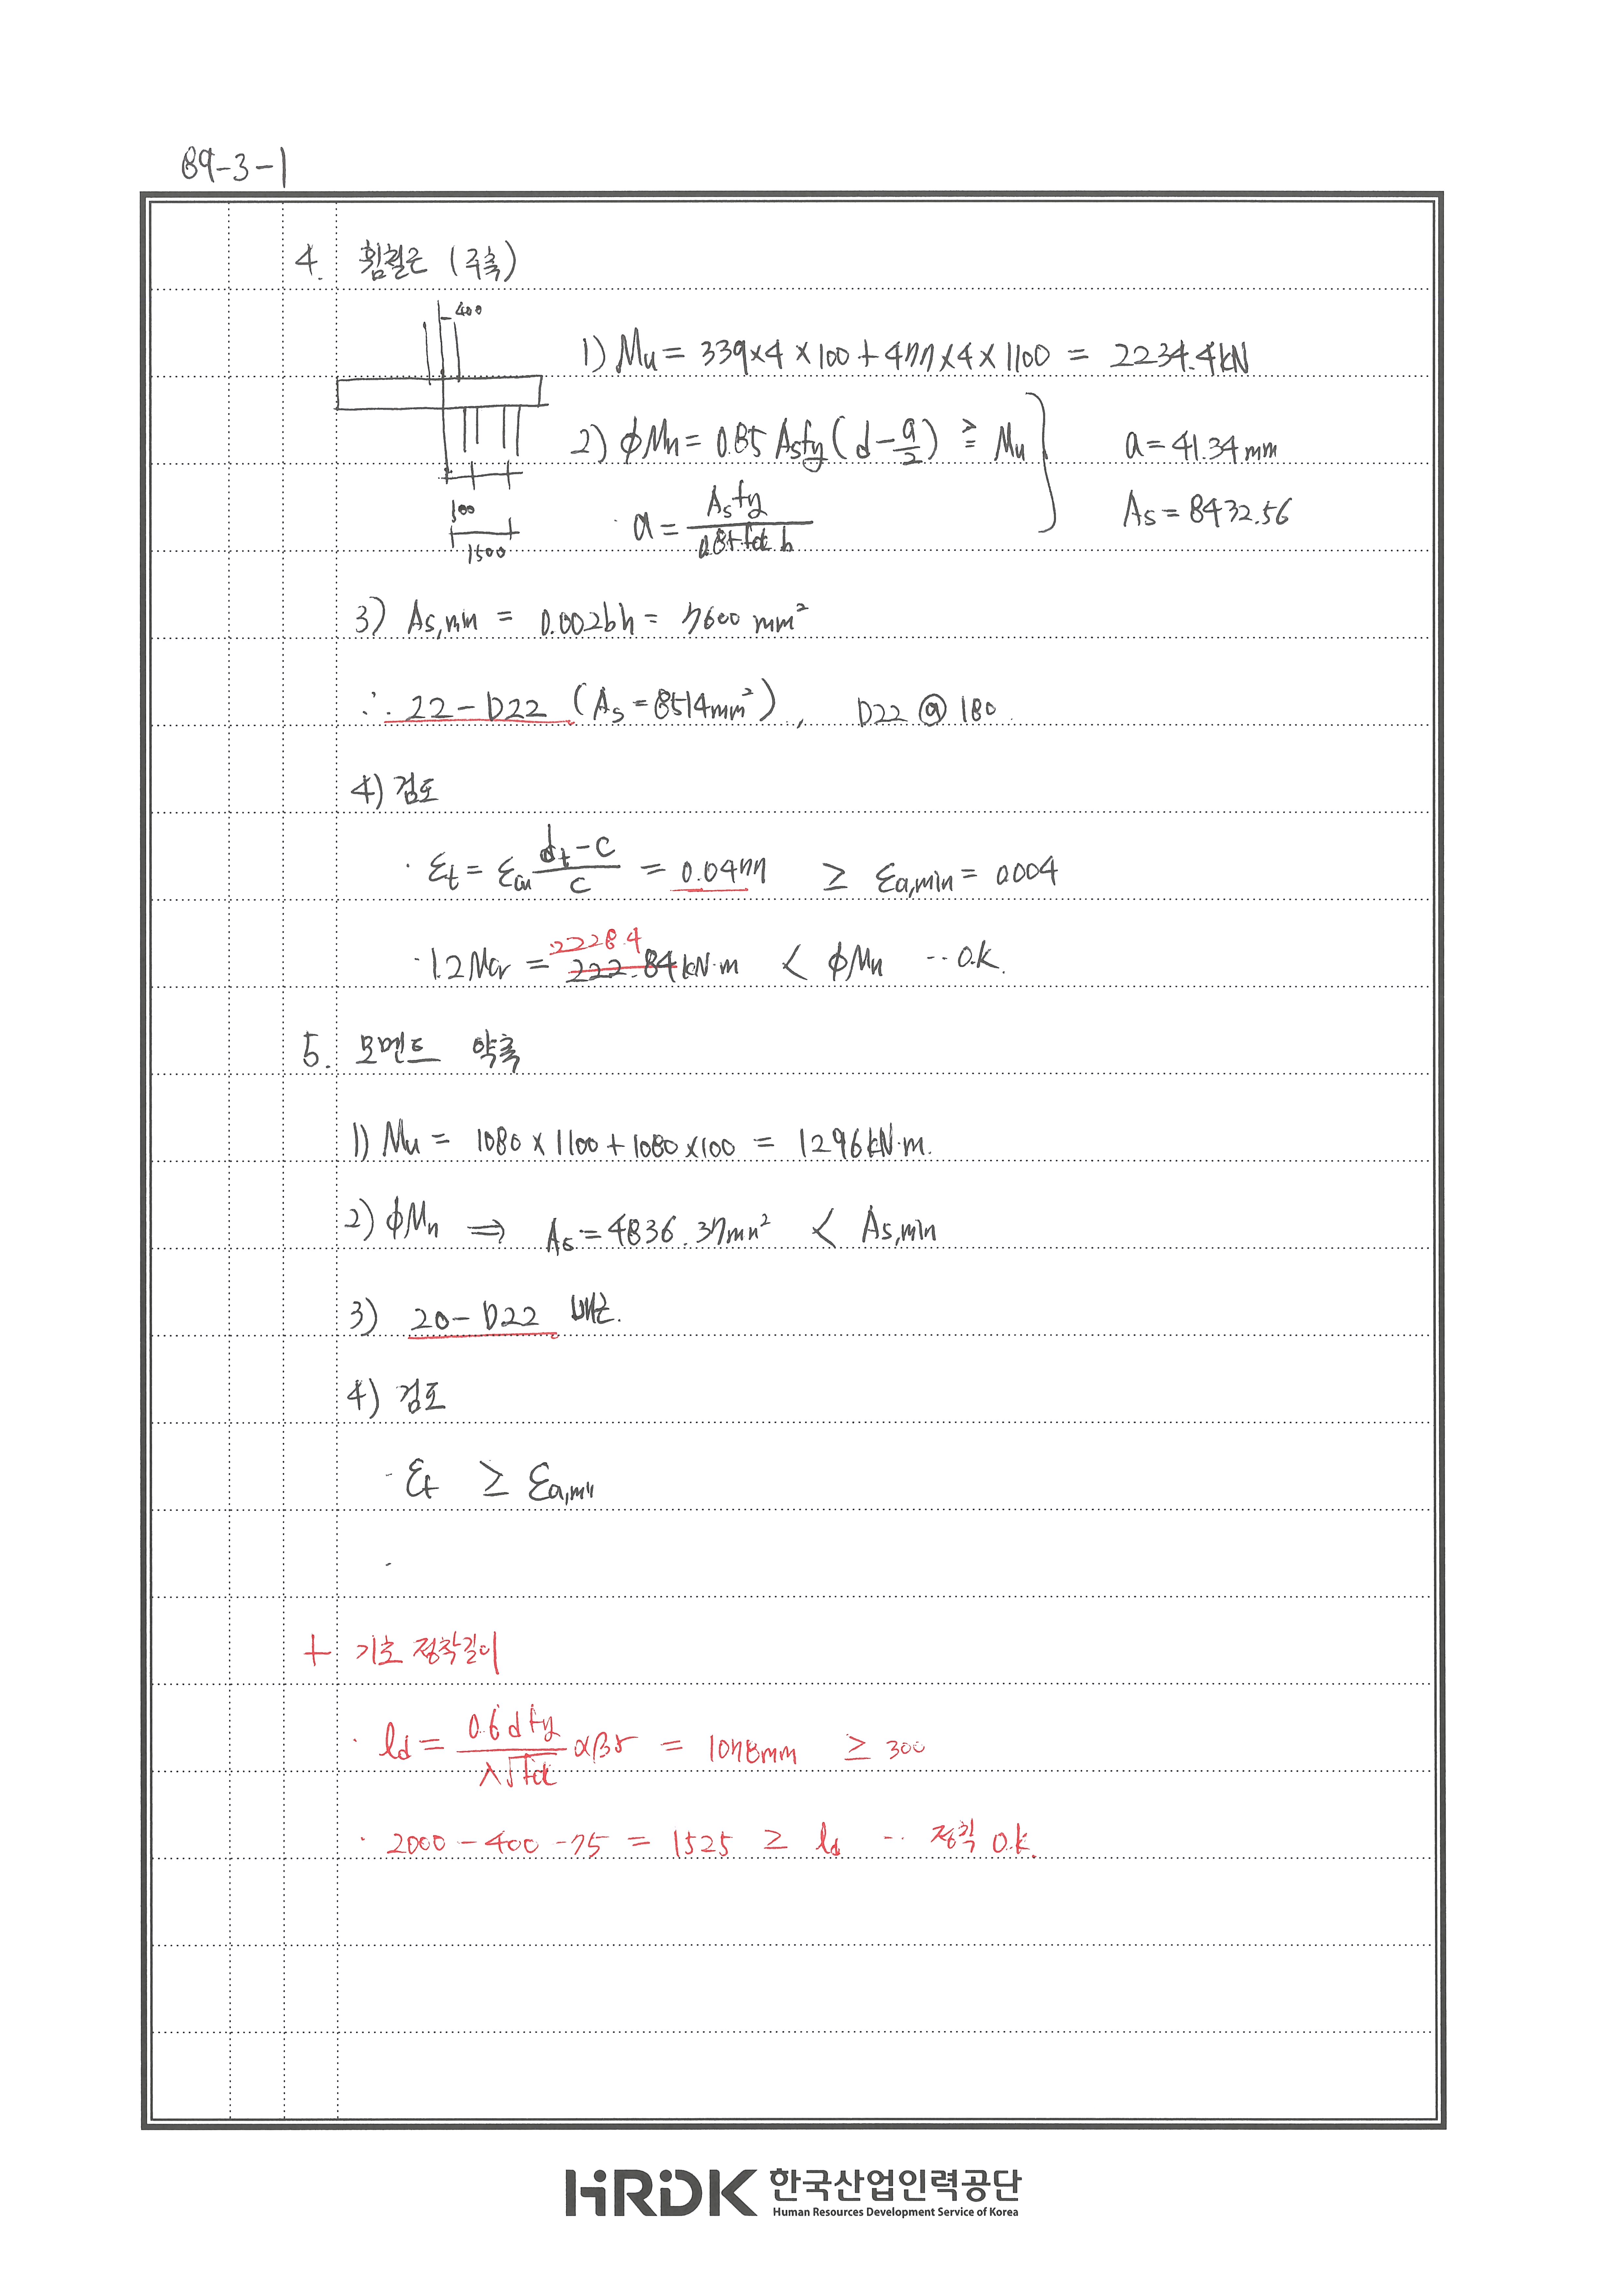 89-3-1
4. 휨철근 (주축)
400
1) Mu = 339×4×100+477×4×1100 = 2234.4kN
2) ϕMn = 0.85 Asfy(d-a/2) ≥ Mu
a = 41.34mm
100
1500
· a = Asfy / 0.85fck b
As = 8432.56
3) As,min = 0.002bh = 7600 mm²
∴ 22-D22 (As = 8514mm²), D22 @ 180.
4) 검토
· εt = εcu (dt-c)/c = 0.0477 ≥ εa,min = 0.004
· 1.2Mcr = 222.84 2228.4 kN·m < ϕMn ·· O.K.
5. 모멘트 약축
1) Mu = 1080×1100+1080×100 = 1296kN·m.
2) ϕMn ⇒ As = 4836.37mm² < As,min
3) 20-D22 배근.
4) 검토
· εt ≥ εa,min
·
+ 기초 정착길이
· ld = 0.6dfy / λ√fck αβγ = 1078mm ≥ 300
· 2000-400-75 = 1525 ≥ ld ·· 정착 O.K.
HRDK 한국산업인력공단
Human Resources Development Service of Korea